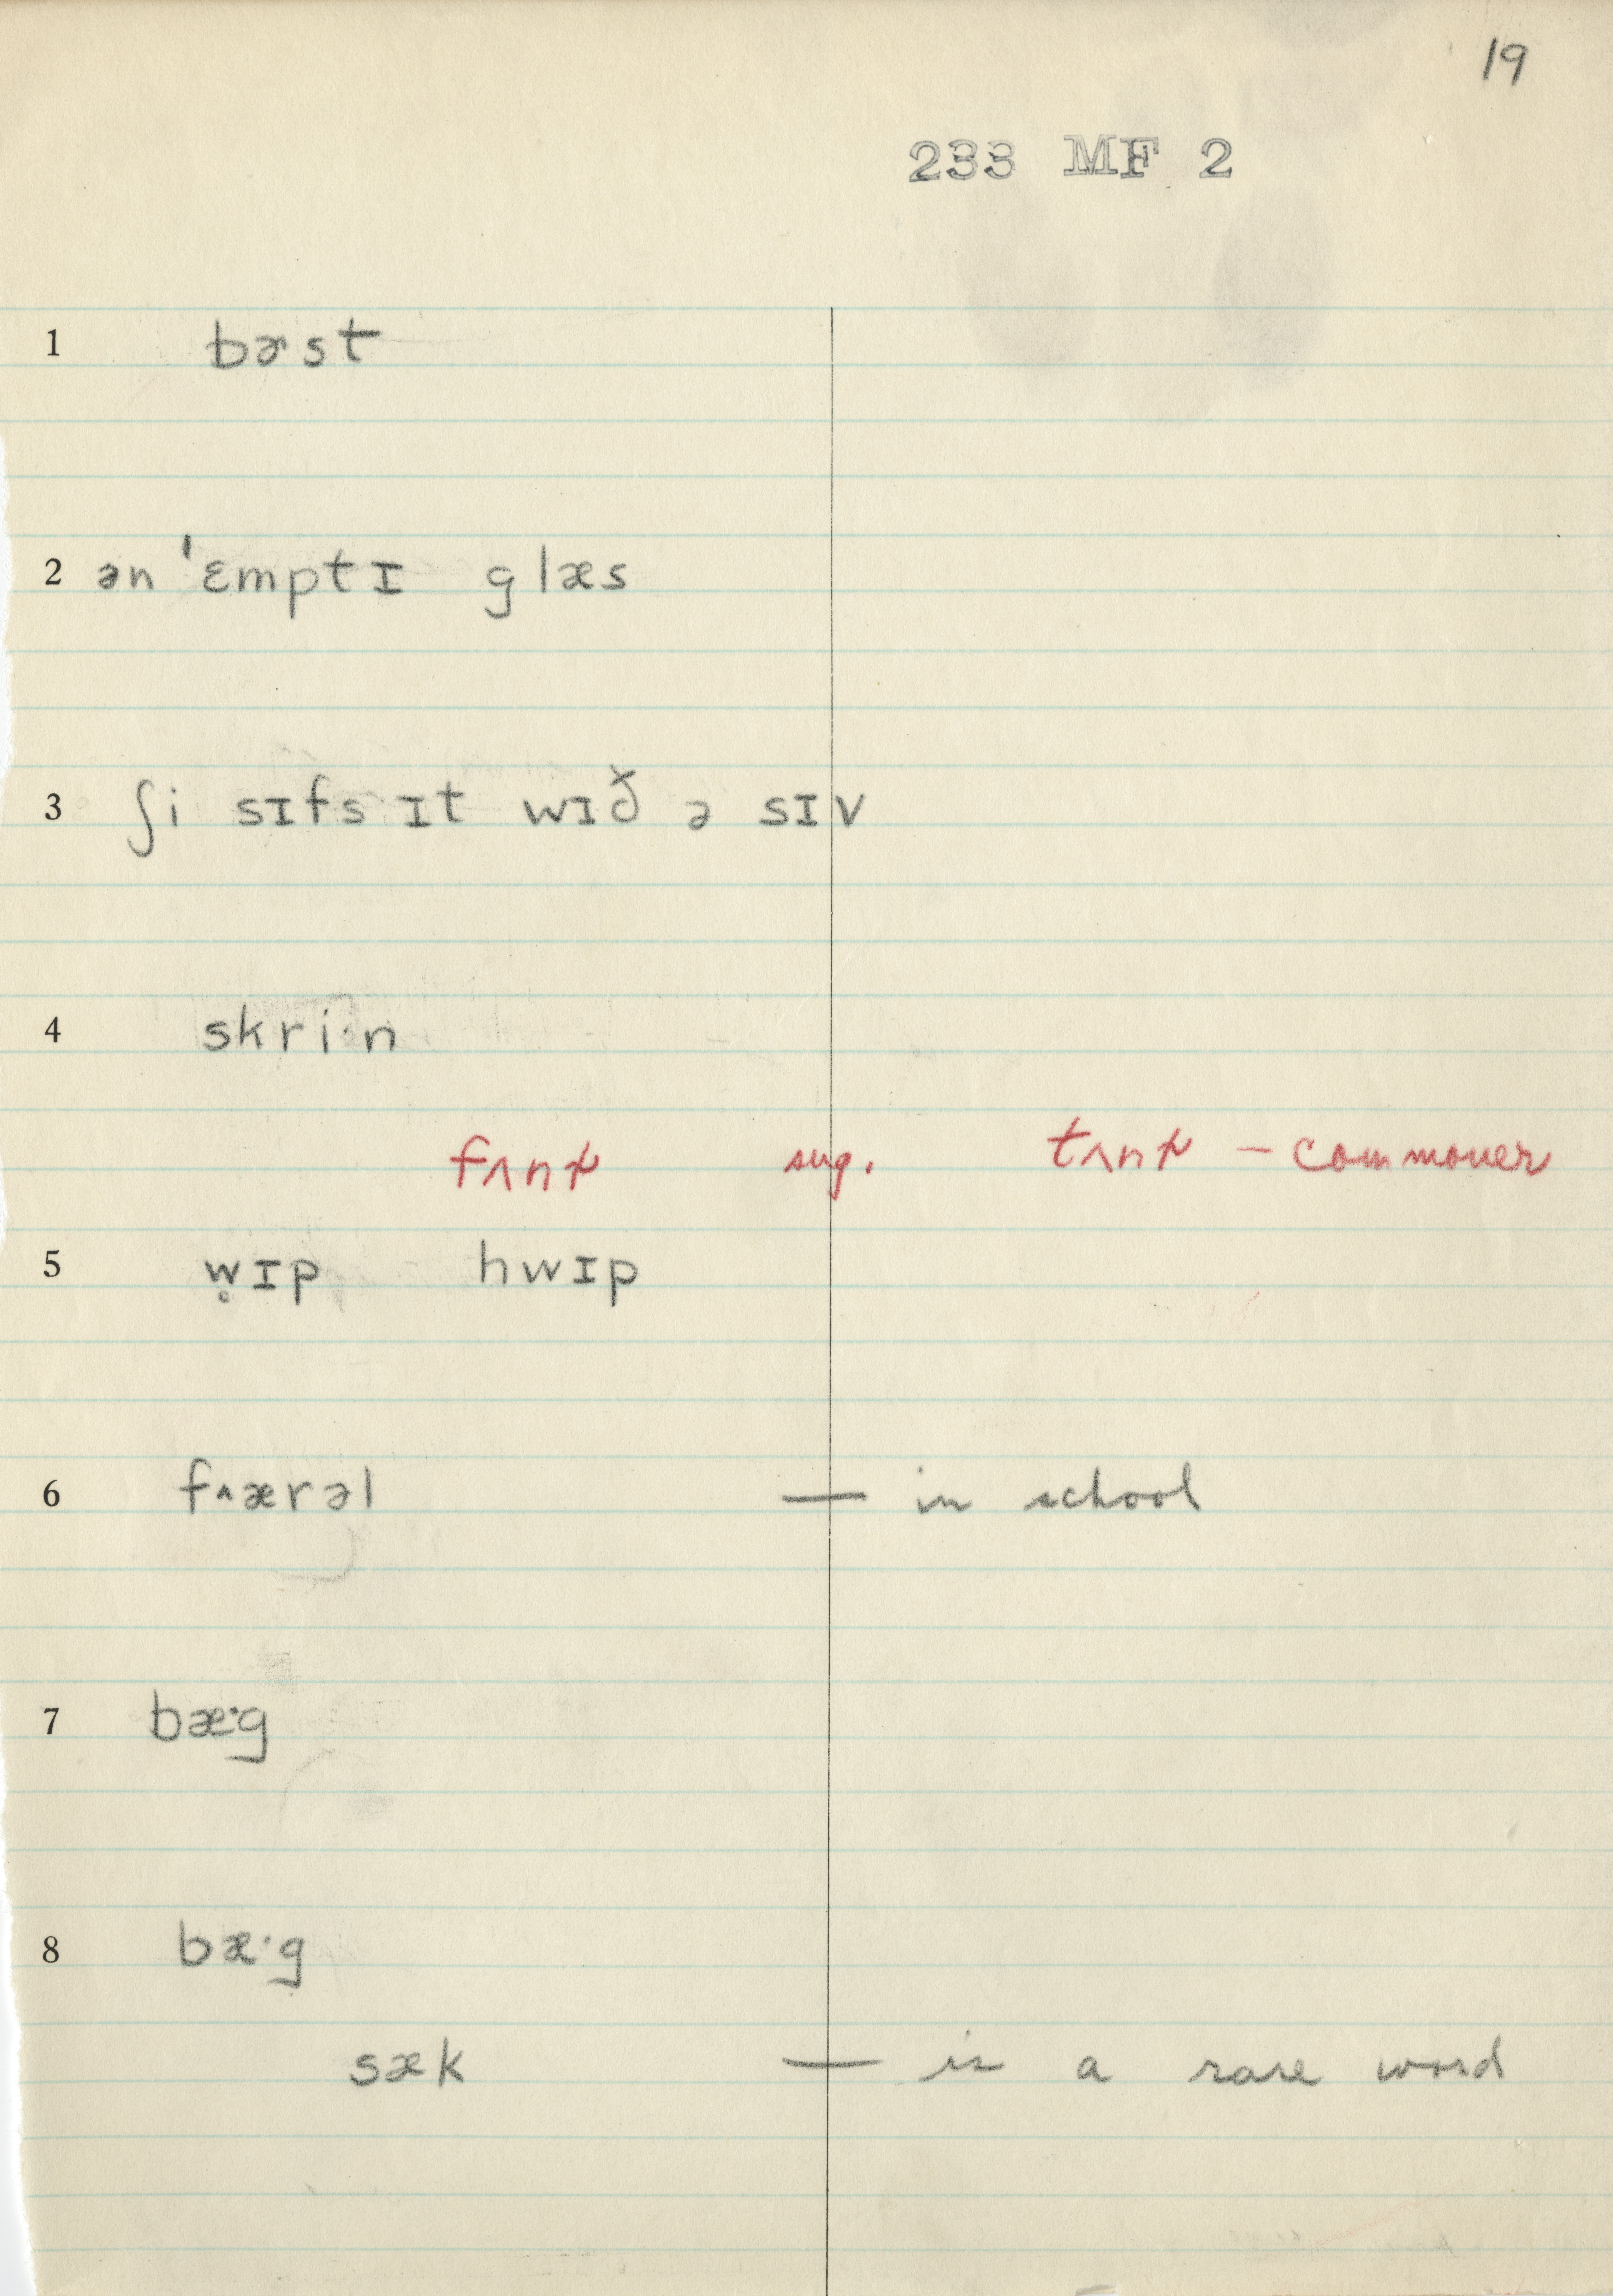 19
233 MF 2
1 bɚst
2 ən ˈɛmptɪ glæs
3 ʃi sɪfs ɪt wɪð ə sɪv
4 skri·n
fʌnɚ sug. tʌnɚ – commoner
5 w̥ɪp hwɪp
6 f^ærəl — in school
7 bæ·g
8 bæ·g
sæk — is a rare word